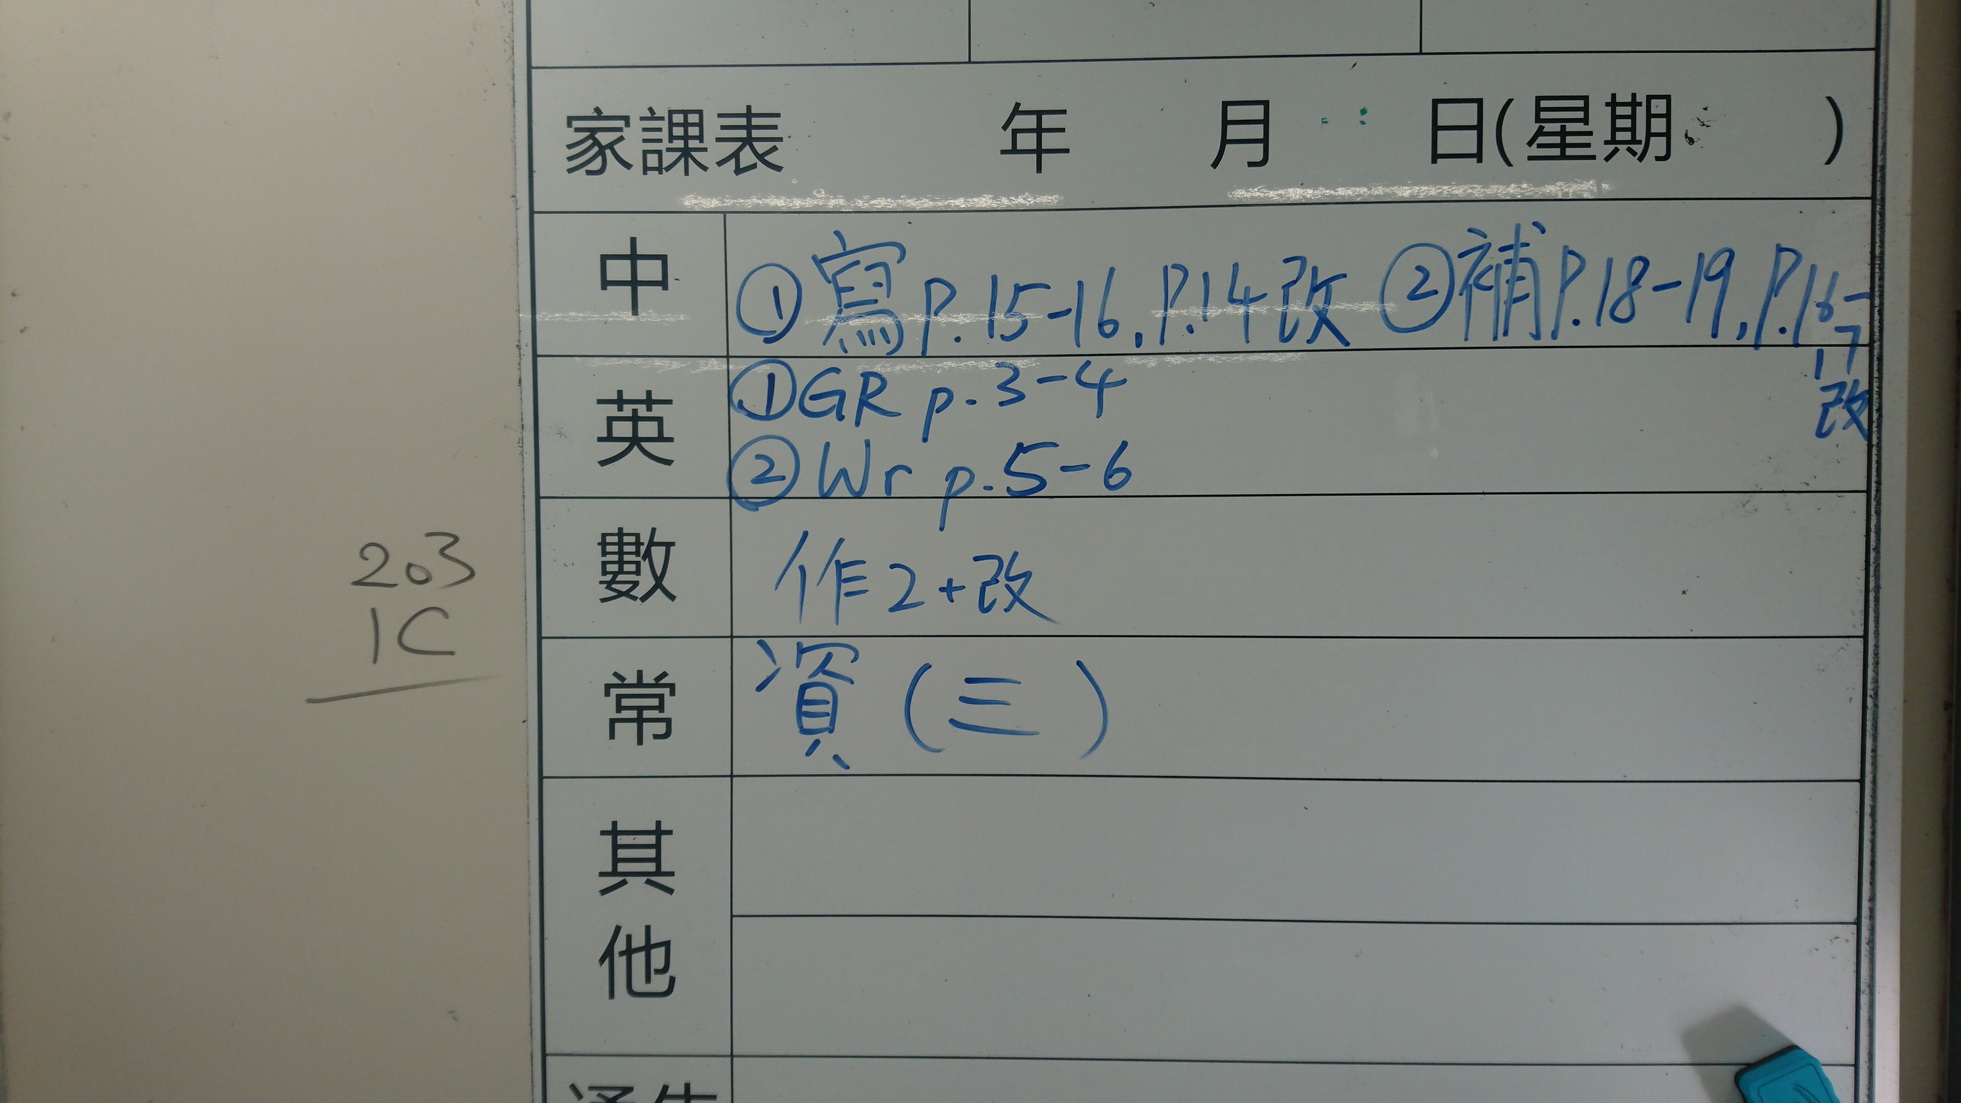 家課表 年 月 日(星期 )
中 ①寫P.15-16,P.14改 ②補P.18-19,P.16-17改
英 ①GR p.3-4
②Wr p.5-6
數 作2+改
常 資(三)
其他
通告
203
1C